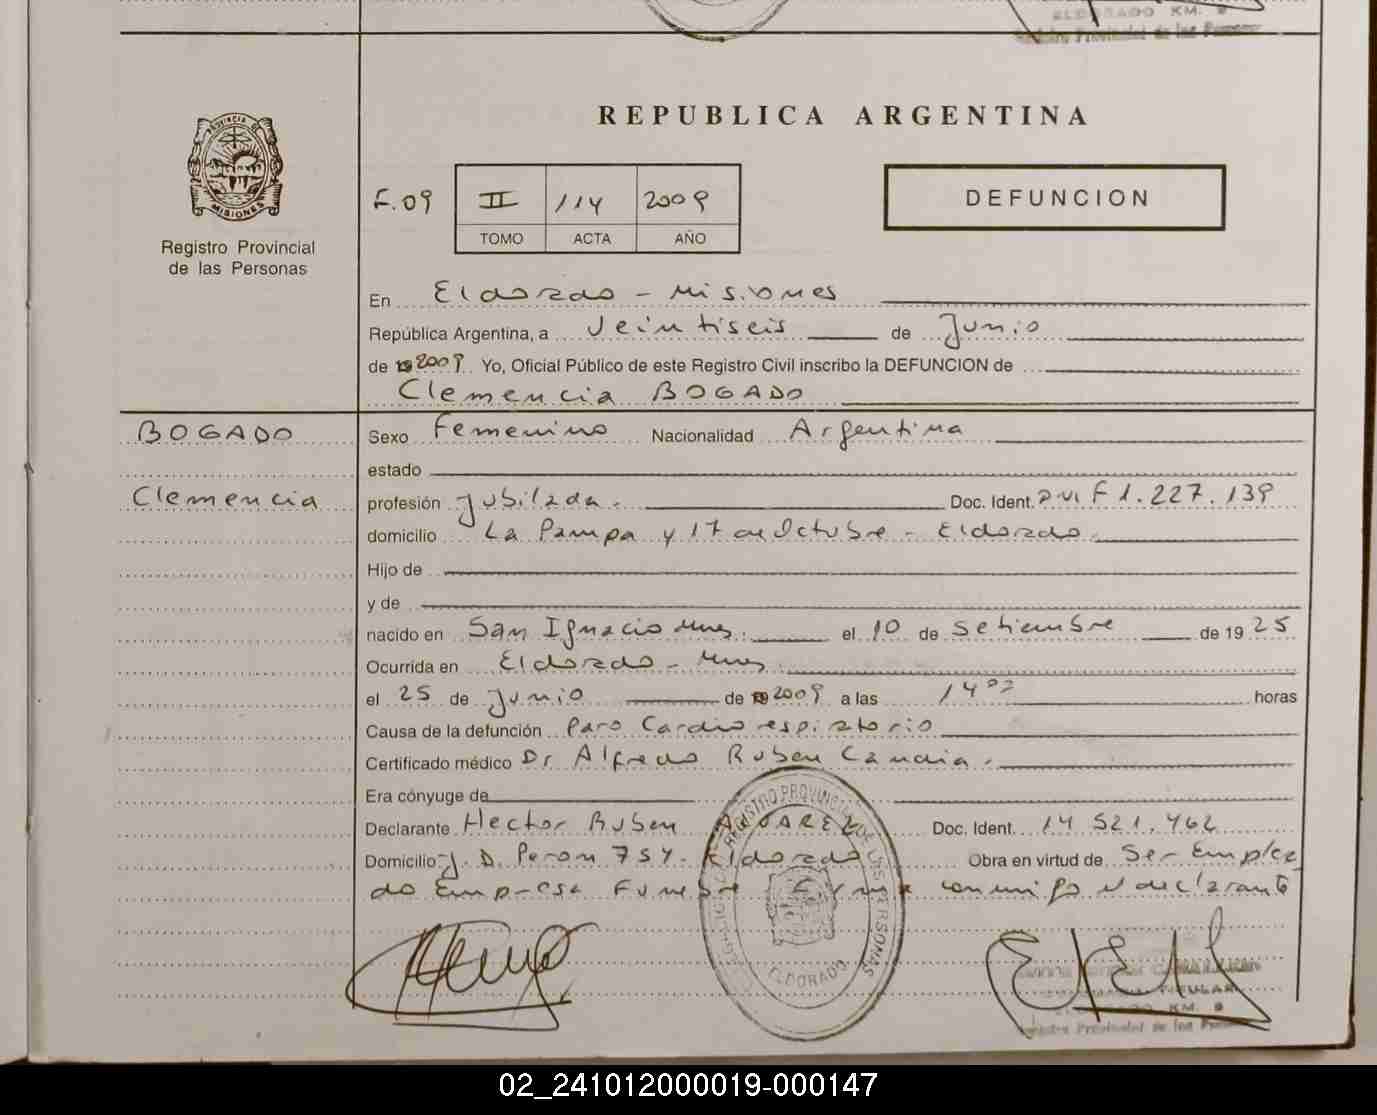 ELDORADO KM. 9
Registro Provincial de las Personas
REPUBLICA ARGENTINA
PROVINCIA DE
MISIONES
Registro Provincial
de las Personas
F. 09
II 114 2009
TOMO ACTA AÑO
DEFUNCION
En Eldorado - Misiones
República Argentina, a Veintiseis de Junio
de 2009 Yo, Oficial Público de este Registro Civil inscribo la DEFUNCION de
Clemencia BOGADO
BOGADO
Clemencia
Sexo Femenino Nacionalidad Argentina
estado
profesión Jubilada. Doc. Ident. F 1.227.139
domicilio La Pampa y 17 de Octubre - Eldorado.
Hijo de
y de
nacido en San Ignacio Mnes. el 10 de Setiembre de 1925
Ocurrida en Eldorado - Mnes
el 25 de Junio de 2009 a las 14 horas
Causa de la defunción Paro Cardio respiratorio
Certificado médico Dr Alfredo Ruben Candia.
Era cónyuge de
Declarante Hector Ruben Doc. Ident. 14 521.462
Domicilio J. D. Peron 754. Eldorado Obra en virtud de Ser Emplea
do Empresa Funebre Firma conmigo el declarante
REGISTRO PROVINCIAL DE LAS PERSONAS
ELDORADO
TITULAR
ELDORADO KM. 9
Registro Provincial de las Personas
02_241012000019-000147